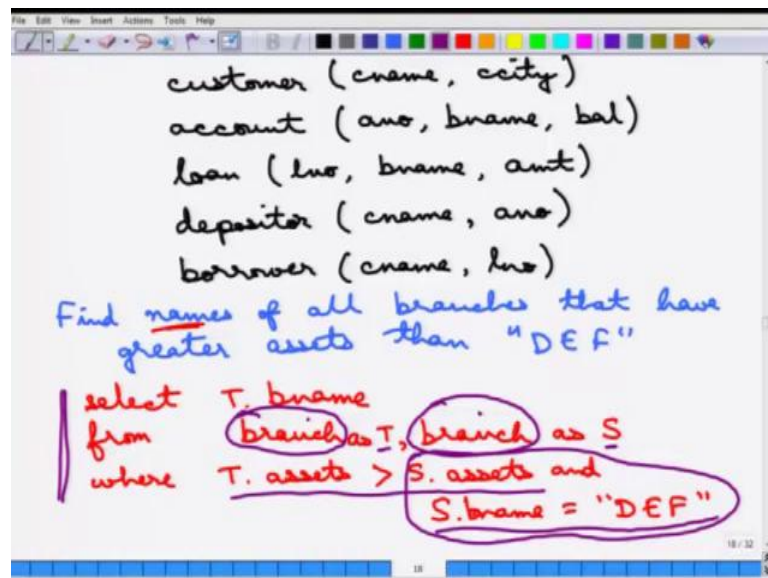 File Edit View Insert Actions Tools Help
customer (cname, ccity)
account (ano, bname, bal)
loan (lno, bname, amt)
depositor (cname, ano)
borrower (cname, lno)
Find names of all branches that have
greater assets than "DEF"
select T. bname
from branch as T, branch as S
where T. assets > S. assets and
S.bname = "DEF"
18/32
18